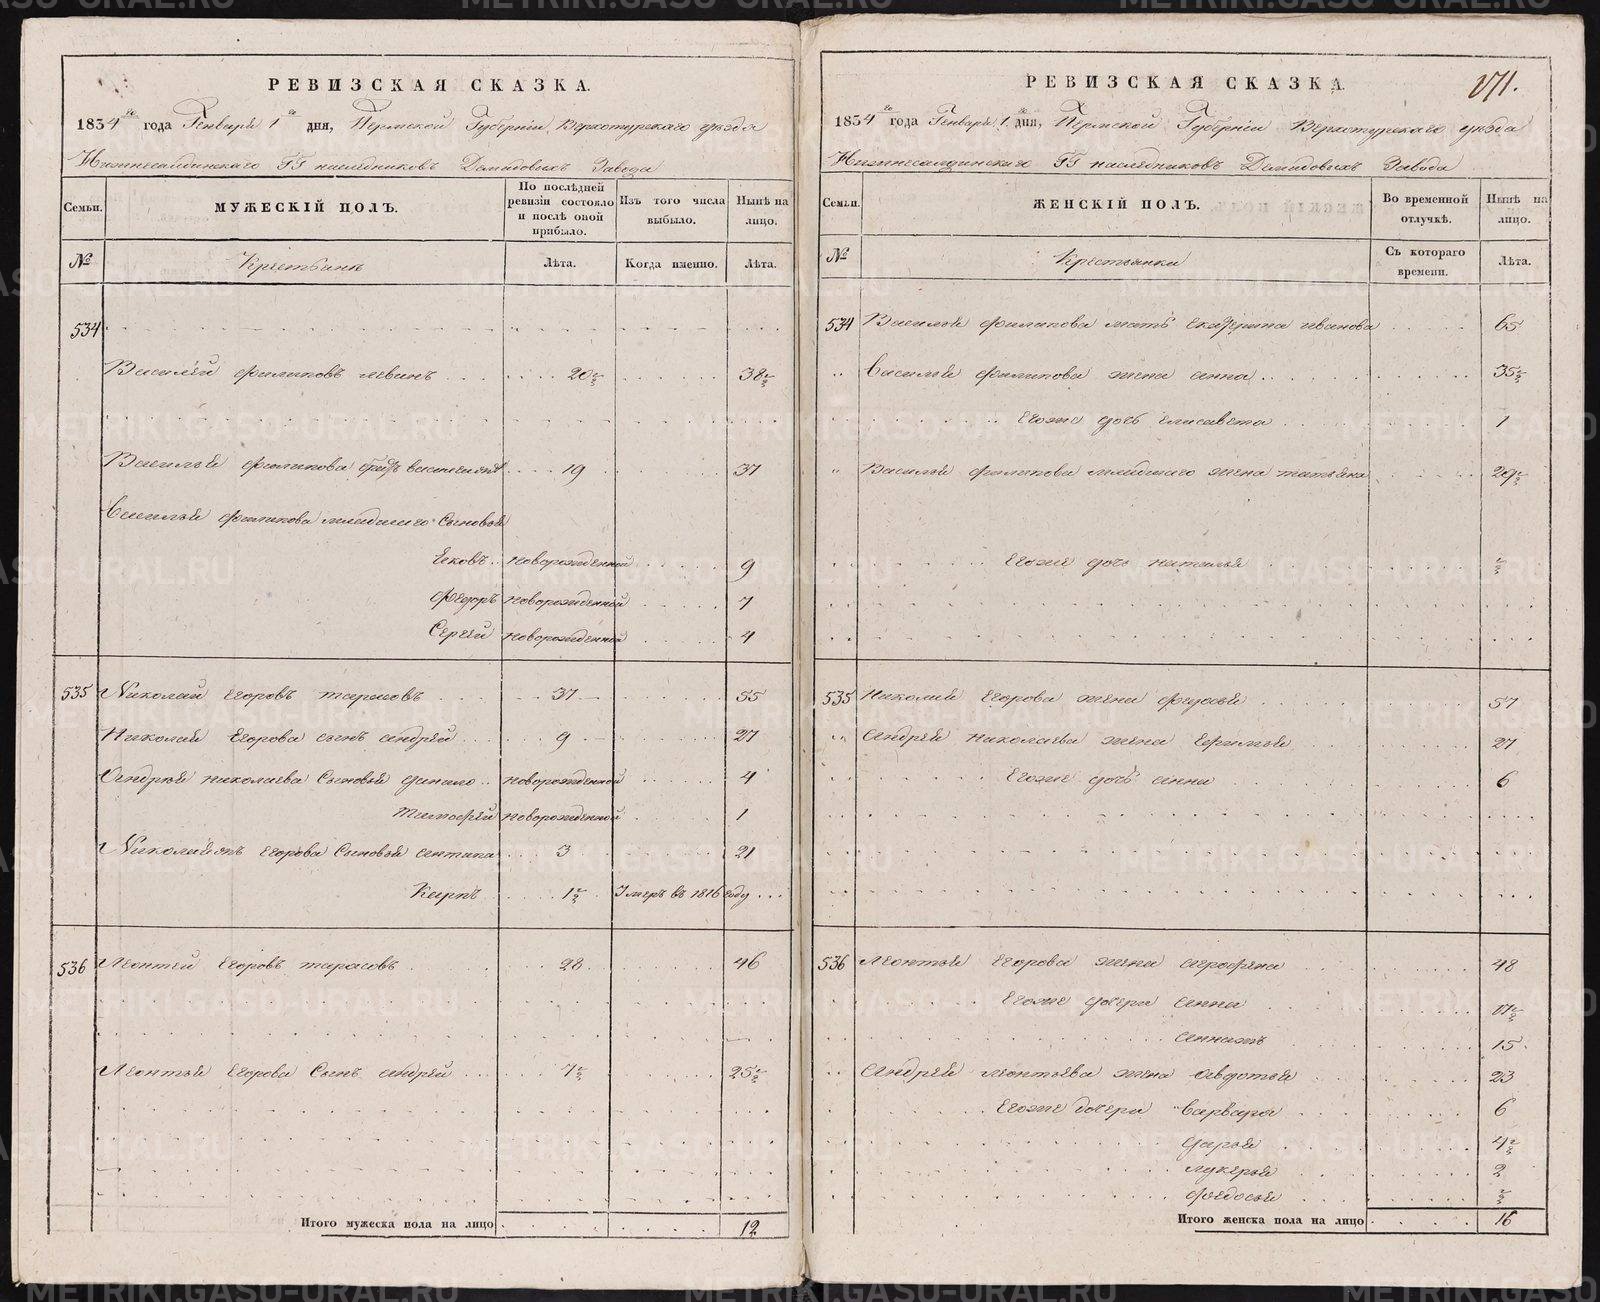 РЕВИЗСКАЯ СКАЗКА.
1834 года Генваря 1 дня, Пермской Губернии Верхотурскаго уезда
Нижнесалдинскаго ГГ наследниковъ Демидовыхъ Завода
Семьи.
МУЖЕСКІЙ ПОЛЪ.
По послѣдней ревизіи состояло и послѣ оной прибыло.
Изъ того числа выбыло.
Нынѣ на лицо.
№
Крестьянъ
Лѣта.
Когда именно.
Лѣта.
534
Василей Филиповъ Левинъ 20½ 38½
Василья Филипова братъ Василей 19 37
Василья Филипова младшаго Сыновья
Яковъ новорожденной 9
Федоръ новорожденной 7
Сергей новорожденной 4
535 Николай Егоровъ Тарасовъ 37 55
Николая Егорова сынъ андрей 9 27
Андрея николаева Сыновья данило новорожденной 4
Тимофей новорожденной 1
Николая Егорова Сыновья антипа 3 21
Карпъ 1½ Умеръ въ 1816 году
536 Леонтей Егоровъ тарасовъ 28 46
Леонтья Егорова Сынъ андрей 7½ 25½
Итого мужеска пола на лицо 12
171.
РЕВИЗСКАЯ СКАЗКА.
1834 года Генваря 1 дня, Пермской Губернии Верхотурскаго уезда
Нижнесалдинскаго ГГ наследниковъ Демидовыхъ Завода
Семьи.
ЖЕНСКІЙ ПОЛЪ.
Во временной отлучкѣ.
Нынѣ на лицо.
№
Крестьянки
Съ котораго времени.
Лѣта.
534 Василья Филипова мать Екатерина иванова 65
Василья Филипова жена анна 35½
Егоже дочь елисавета 1
Василья Филипова младшаго жена татьяна 29½
Егоже дочь наталья ½
535 Николая Егорова жена Федосья 57
Андрея николаева жена Ефимья 27
Егоже дочь анна 6
536 Леонтья Егорова жена агрофена 48
Егоже дочери анна 17½
15
Андрея леонтьева жена Авдотья 23
Егоже дочери варвара 6
дарья 4½
лукерья 2
федосья ½
Итого женска пола на лицо 16
METRIKI.GASO-URAL.RU